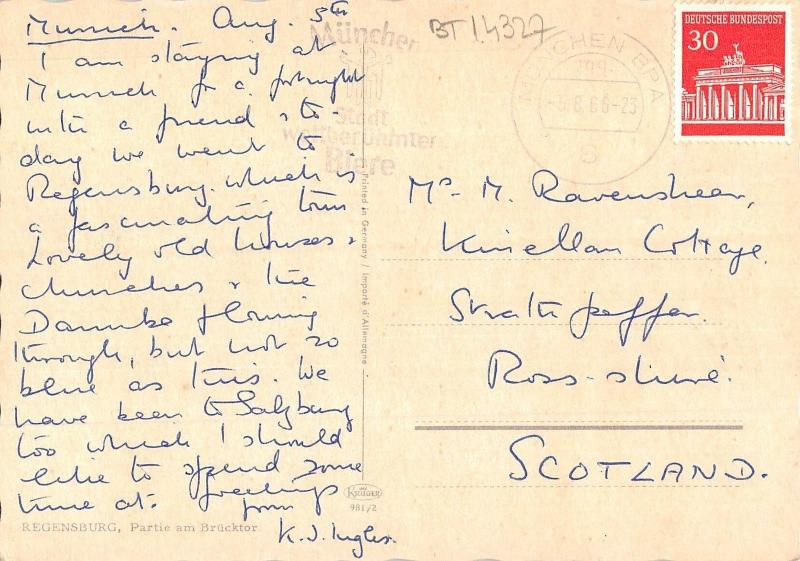 Munich. Aug. 5th
I am staying at
Munich for a fortnight
with a friend & to-
day we went to
Regensburg. which is
a fascinating town
Lovely old houses &
churches & the
Danube flowing
through, but not so
blue as this. We
have been to Salzburg
too which I should
like to spend some
time at. Greetings
from
K. J. Ingles.
REGENSBURG, Partie am Brücktor
BT 14327
München
Stadt
weltberühmter
Biere
MÜNCHEN BPA
-5.8.66-23
DEUTSCHE BUNDESPOST
30
Printed in Germany / Importé d'Allemagne
KRÜGER
981/2
Mrs M. Ravenshear,
Kinellan Cottage.
Strathpeffer.
Ross-shire.
SCOTLAND.